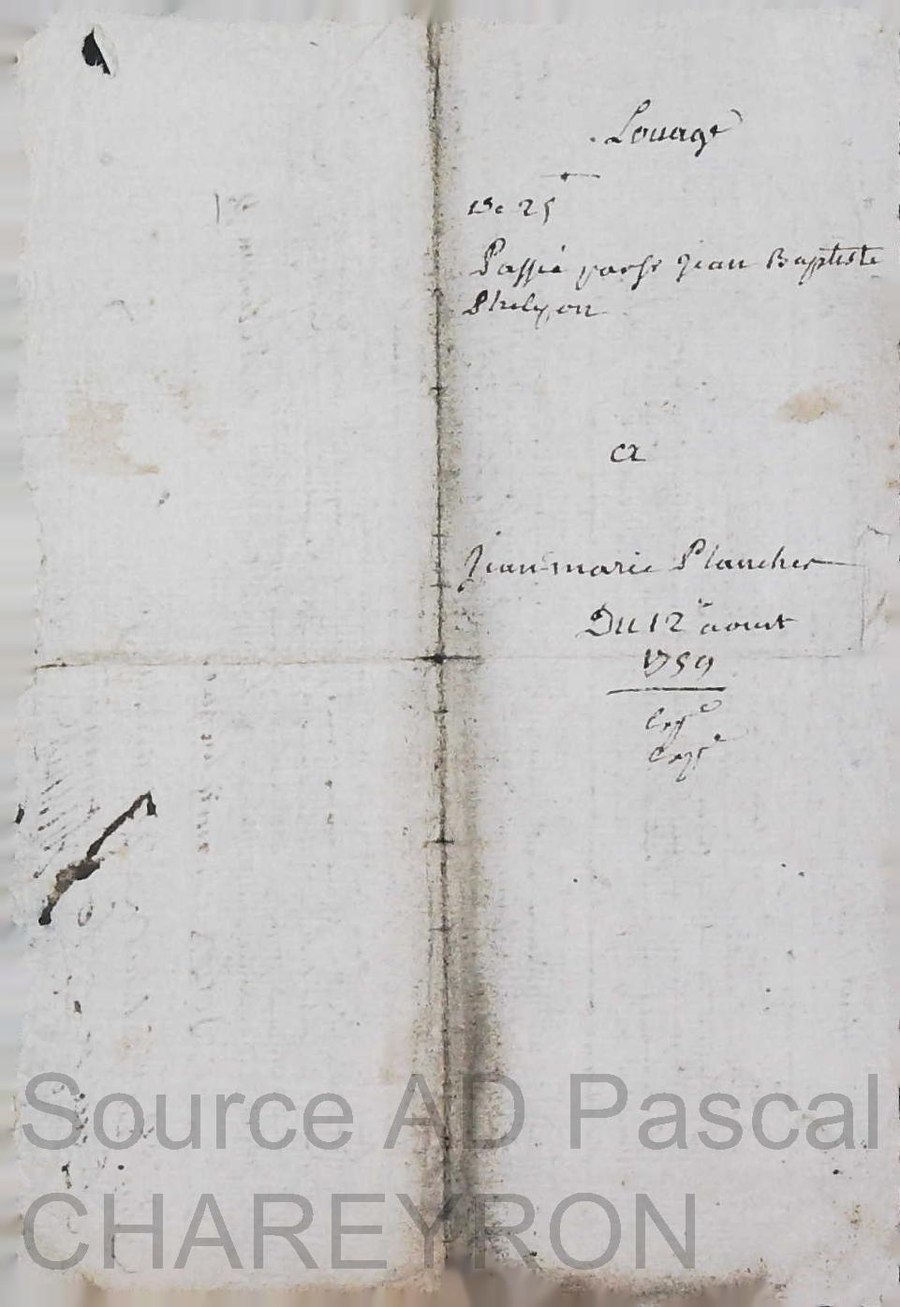 Louage
25
Passé par Sr Jean Baptiste
Phelypon
a
Jean marie Plancher
Du 12 aoust
1759
Source AD Pascal
CHAREYRON